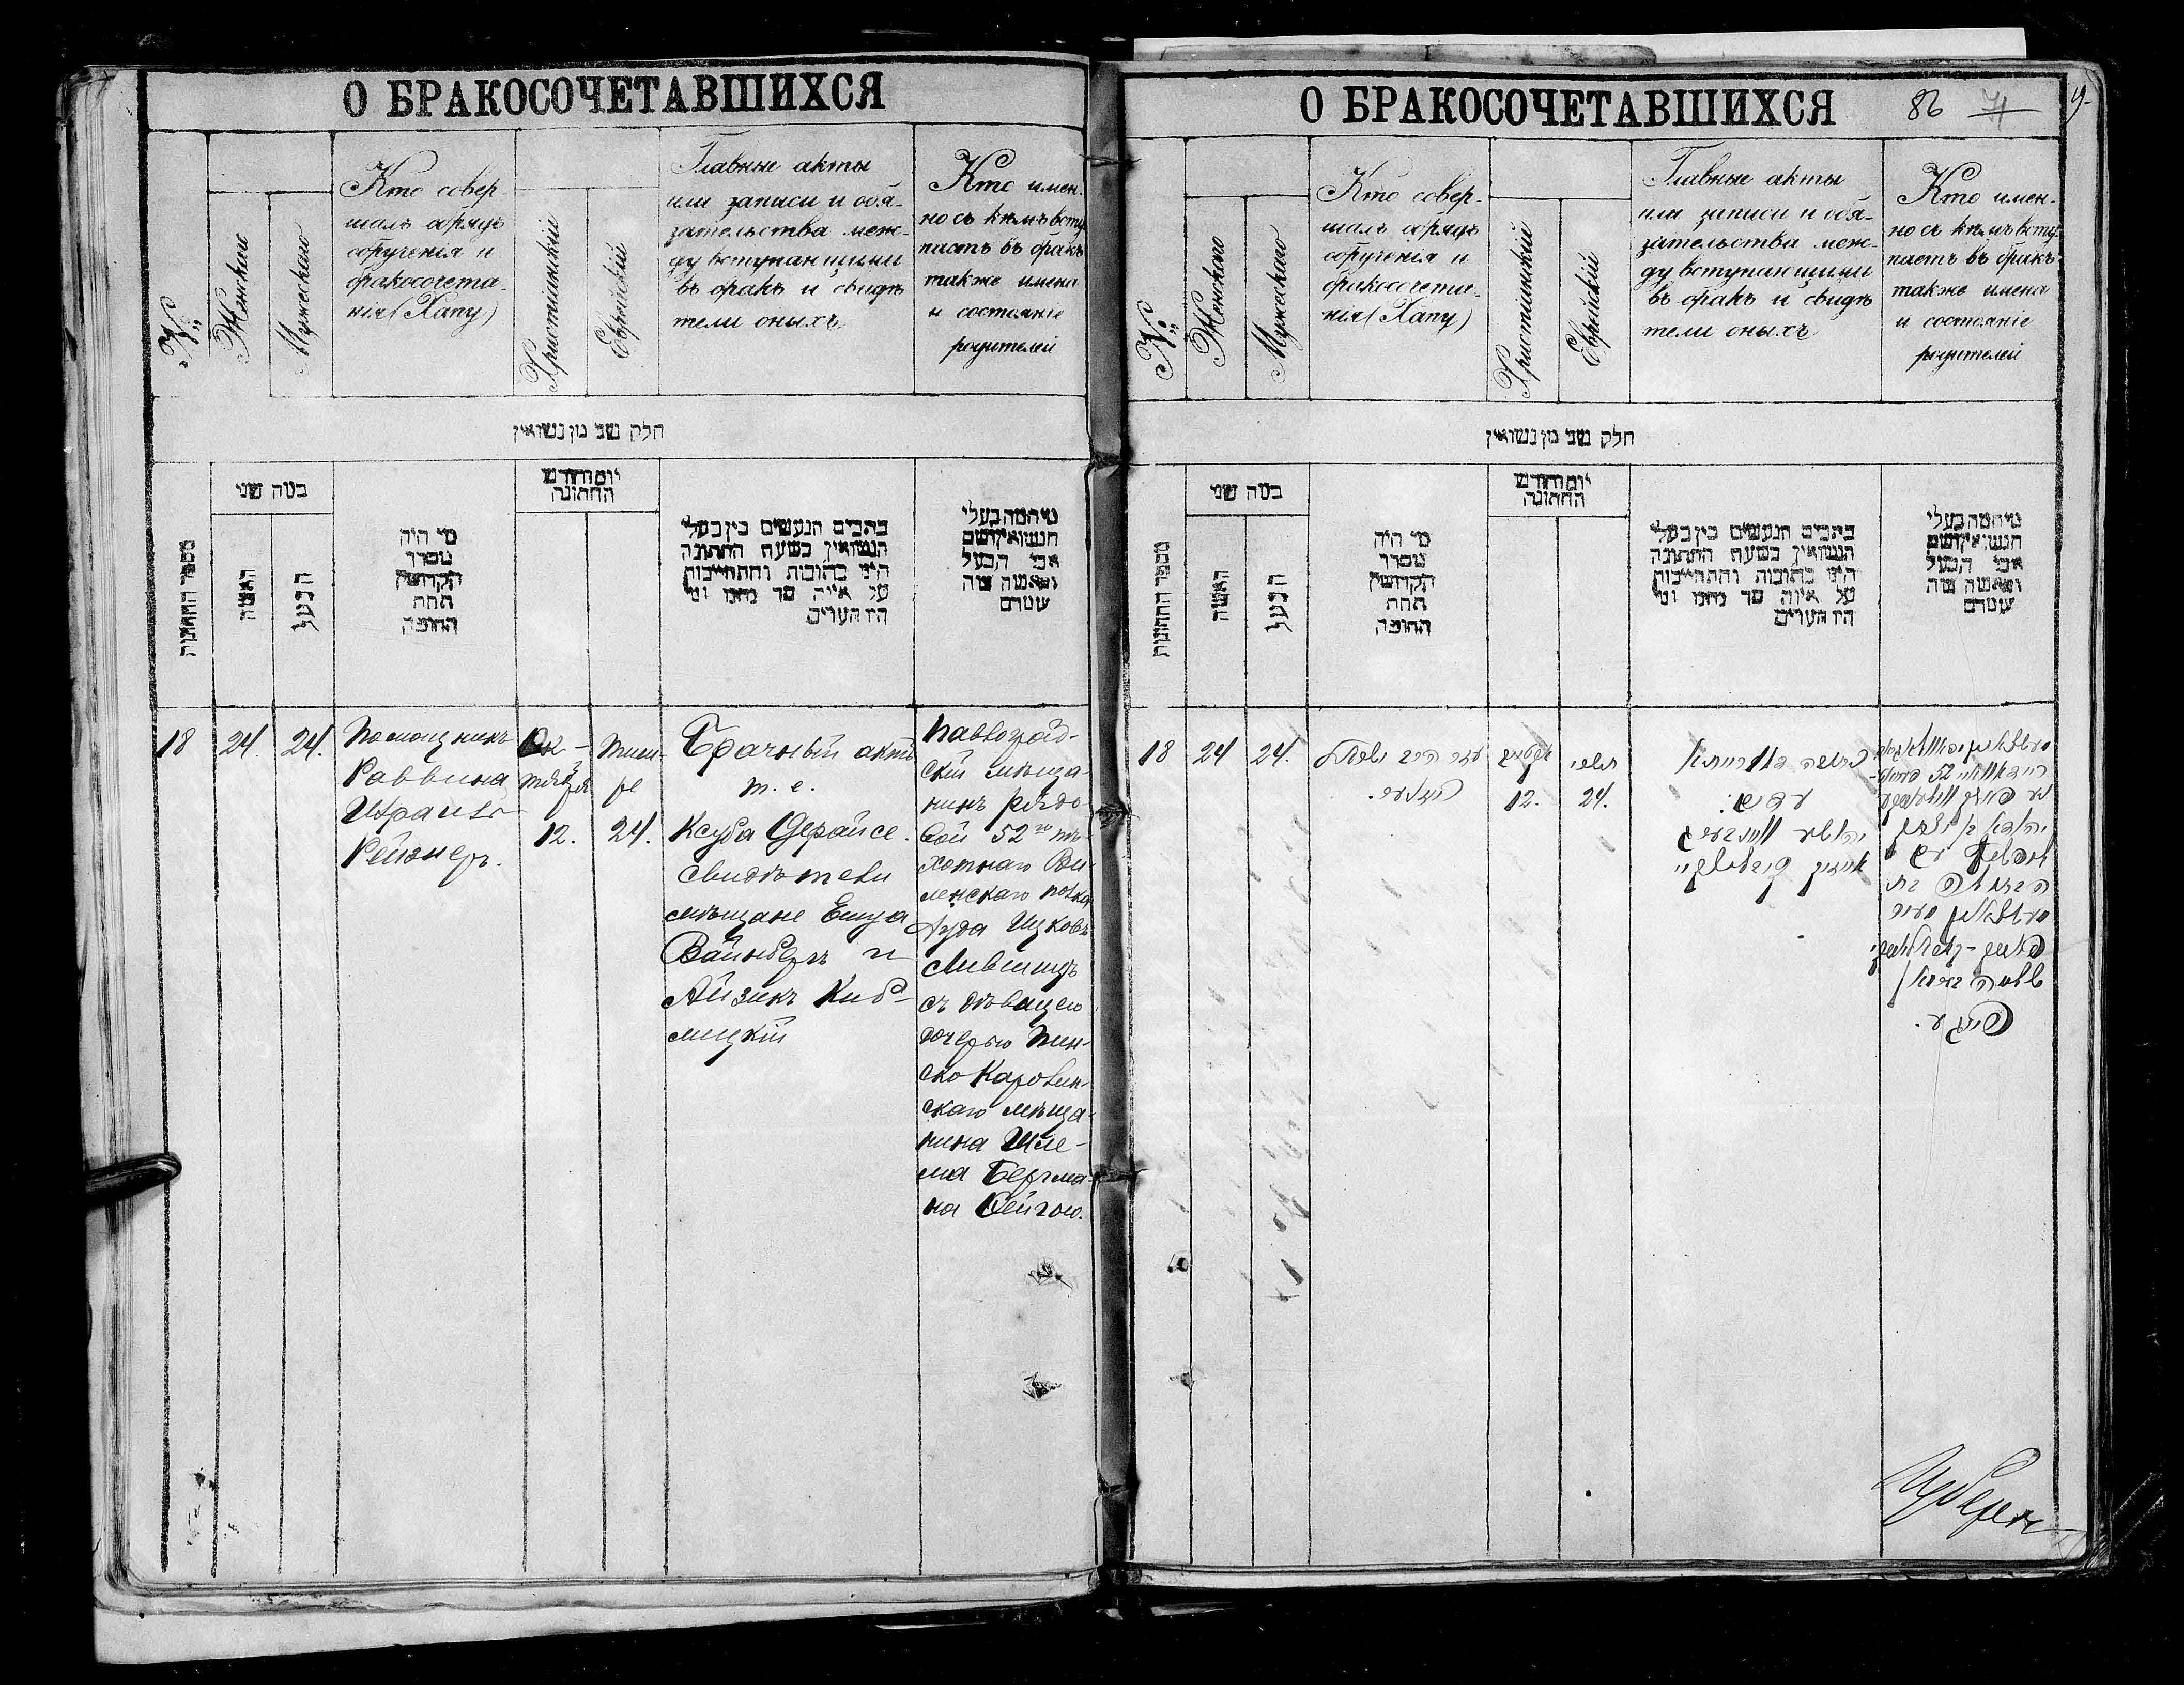 О БРАКОСОЧЕТАВШИХСЯ
№
Женскаго
Мужескаго
Кто совер-
шалъ обрядъ
обрученія и
бракосочета-
нія (Хапу)
Христіанскій
Еврейскій
Главные акты
или записи и обя-
зательства меж-
ду вступающими
въ бракъ и свидѣ
тели оныхъ
Кто имен-
но съ кѣмъ всту-
паетъ въ бракъ
также имена
и состояніе
родителей
חלק שני מן נשואין
מספר החתונות
כמה שני
האשה
הבעל
מי היה
מסדר
הקדושין
תחת
החופה
יום וחודש
החתונה
כתבים הנעשים בין בעלי
הנשואין בשעת החתונה
היינו כתובות והתחייבות
על איזה סך נתנו ומי
היו העדים
מי המה בעלי
הנשואין ושם
אבי הבעל
והאשה מה
שמם
18
24
24.
Помощникъ
Раввина
Израиль
Рейзнеръ.
Ок-
тября
12.
Тиш-
ре
24.
Брачный актъ
т. е.
Ксуба Дерайсе.
Свидѣтели
мѣщане Емуа
Вайнберъ и
Айзикъ Киб-
лицкій
Павлоград-
скій мѣща-
нинъ рядо
вой 52го пѣ-
хотнаго Ви-
ленскаго полка
Іуда Ицковъ
Лившицъ
съ дѣвицею
дочерью Пин-
ско Каролин-
скаго мѣща-
нина Шле-
ма Бергма-
на Фейгою.
О БРАКОСОЧЕТАВШИХСЯ
86 71
№
Женскаго
Мужескаго
Кто совер-
шалъ обрядъ
обрученія и
бракосочета-
нія (Хапу)
Христіанскій
Еврейскій
Главные акты
или записи и обя-
зательства меж-
ду вступающими
въ бракъ и свидѣ
тели оныхъ
Кто имен-
но съ кѣмъ всту-
паетъ въ бракъ
также имена
и состояніе
родителей
חלק שני מן נשואין
מספר החתונות
כמה שני
האשה
הבעל
מי היה
מסדר
הקדושין
תחת
החופה
יום וחודש
החתונה
כתבים הנעשים בין בעלי
הנשואין בשעת החתונה
היינו כתובות והתחייבות
על איזה סך נתנו ומי
היו העדים
מי המה בעלי
הנשואין ושם
אבי הבעל
והאשה מה
שמם
18
24
24.
עזר הרב ישראל
12.
תשרי
24.
כתובה דאורייתא
עדים:
אייזיק קיבליצקי
52
פינסק-קארלינסקי
שלמה בערגמאן
פייגע.